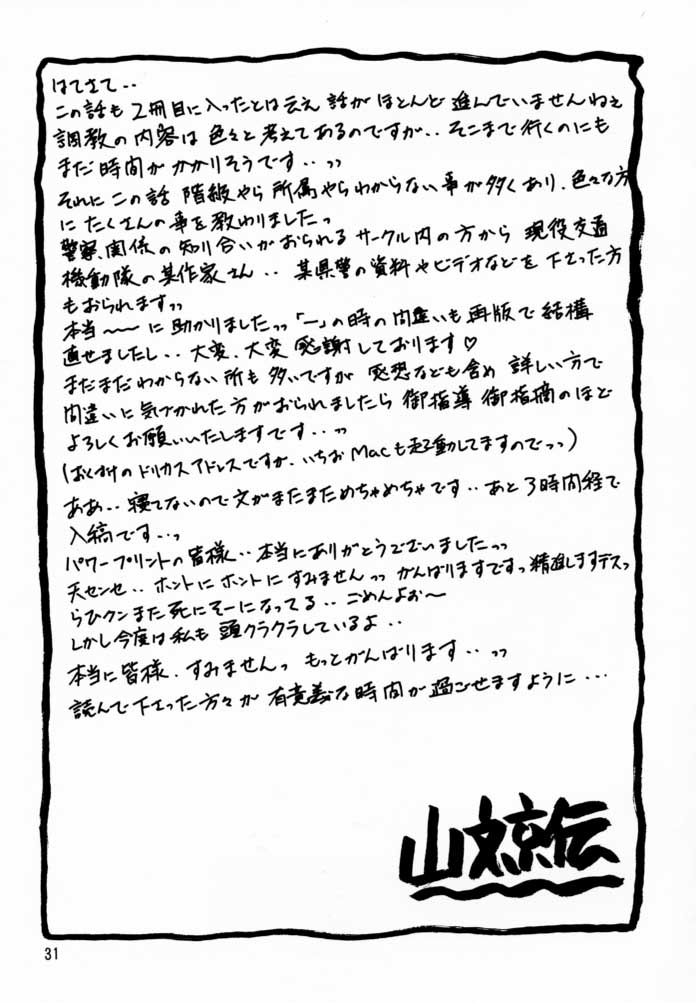 はてさて‥
この話も 2冊目に入ったとは云え 話が ほとんど 進んでいませんねぇ
調教の内容は 色々と考えてあるのですが‥ そこまで行くのにも
まだ時間が かかりそうです‥っっ
それに この話 階級やら 所属やらわからない事が多くあり、色々な方
に たくさんの事を教わりましたっ
警察関係の知り合いがおられる サークル内の方から 現役交通
機動隊の某作家さん‥ 某県警の資料やビデオなどを 下さった方
もおられますっっ
本当〜〜に 助かりましたっっ「一」の時の間違いも再版で 結構
直せましたし‥ 大変、大変 感謝しております♡
まだまだわからない所も 多いですが 感想なども含め 詳しい方で
間違いに気づかれた方がおられましたら 御指導 御指摘のほど
よろしくお願いいたしますです‥っっ
(おくづけのドリカスアドレスですが、いちおMacも起動してますのでっっ)
ああ‥ 寝てないので文がまたまためちゃめちゃです‥ あと3時間程で
入稿です‥っ
パワープリントの皆様‥ 本当にありがとうございましたっっ
天センセ‥ ホントに ホントに すみませんっっ がんばりますですっ 精進しますデスっ
らひクン また 死にそーになってる‥ ごめんよぉ〜
しかし今度は私も 頭クラクラしているよ‥
本当に皆様、すみませんっ もっとがんばります‥っっ
読んで下さった方々が 有意義な時間が 過ごせますように…
山文京伝
31